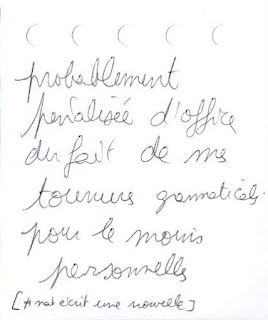 probablement
pénalisée d'office
du fait de mes
tournures grammaticales
pour le moins
personnelles
[A nat écrit une nouvelle]